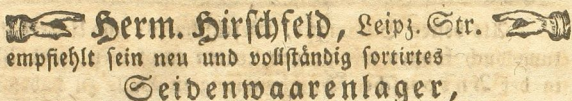 Herm. Hirschfeld, Leipz. Str.
empfiehlt sein neu und vollständig sortirtes
Seidenwaarenlager,